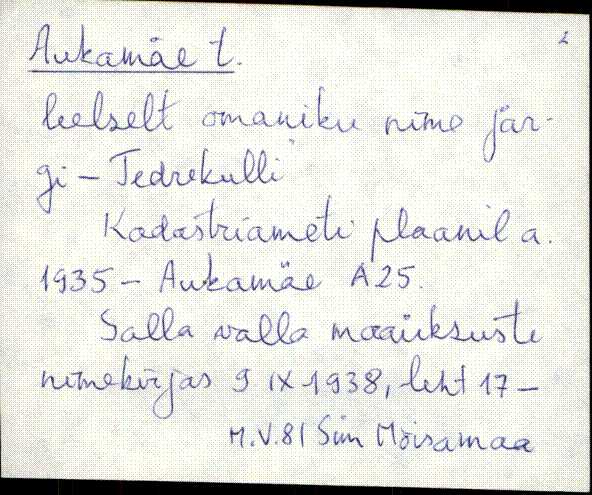 2
Aukamäe t.
keelselt omaniku nime jär-
gi – Tedrekulli
Kadastriameti plaanil a.
1935 – Aukamäe A 25.
Salla valla maaüksuste
nimekirjas 9 IX 1938, leht 17 –
M.V.81 Siim Mõisamaa